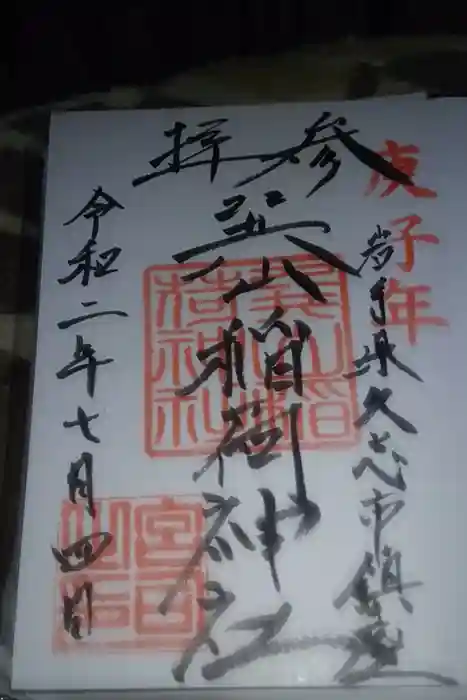 参拝
庚子年
岩手県久慈市鎮座
巽山稲荷神社
巽山稲荷神社
令和二年七月四日